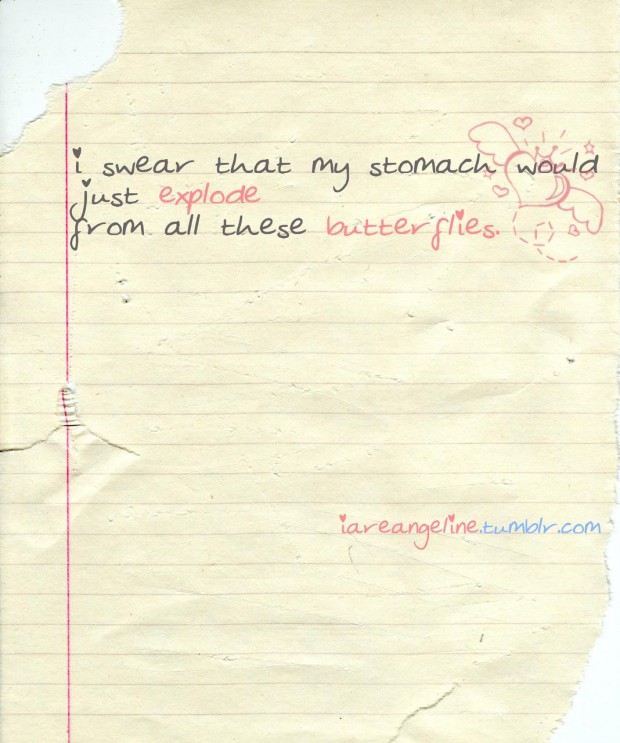 i swear that my stomach would
just explode
from all these butterflies.
iareangeline.tumblr.com